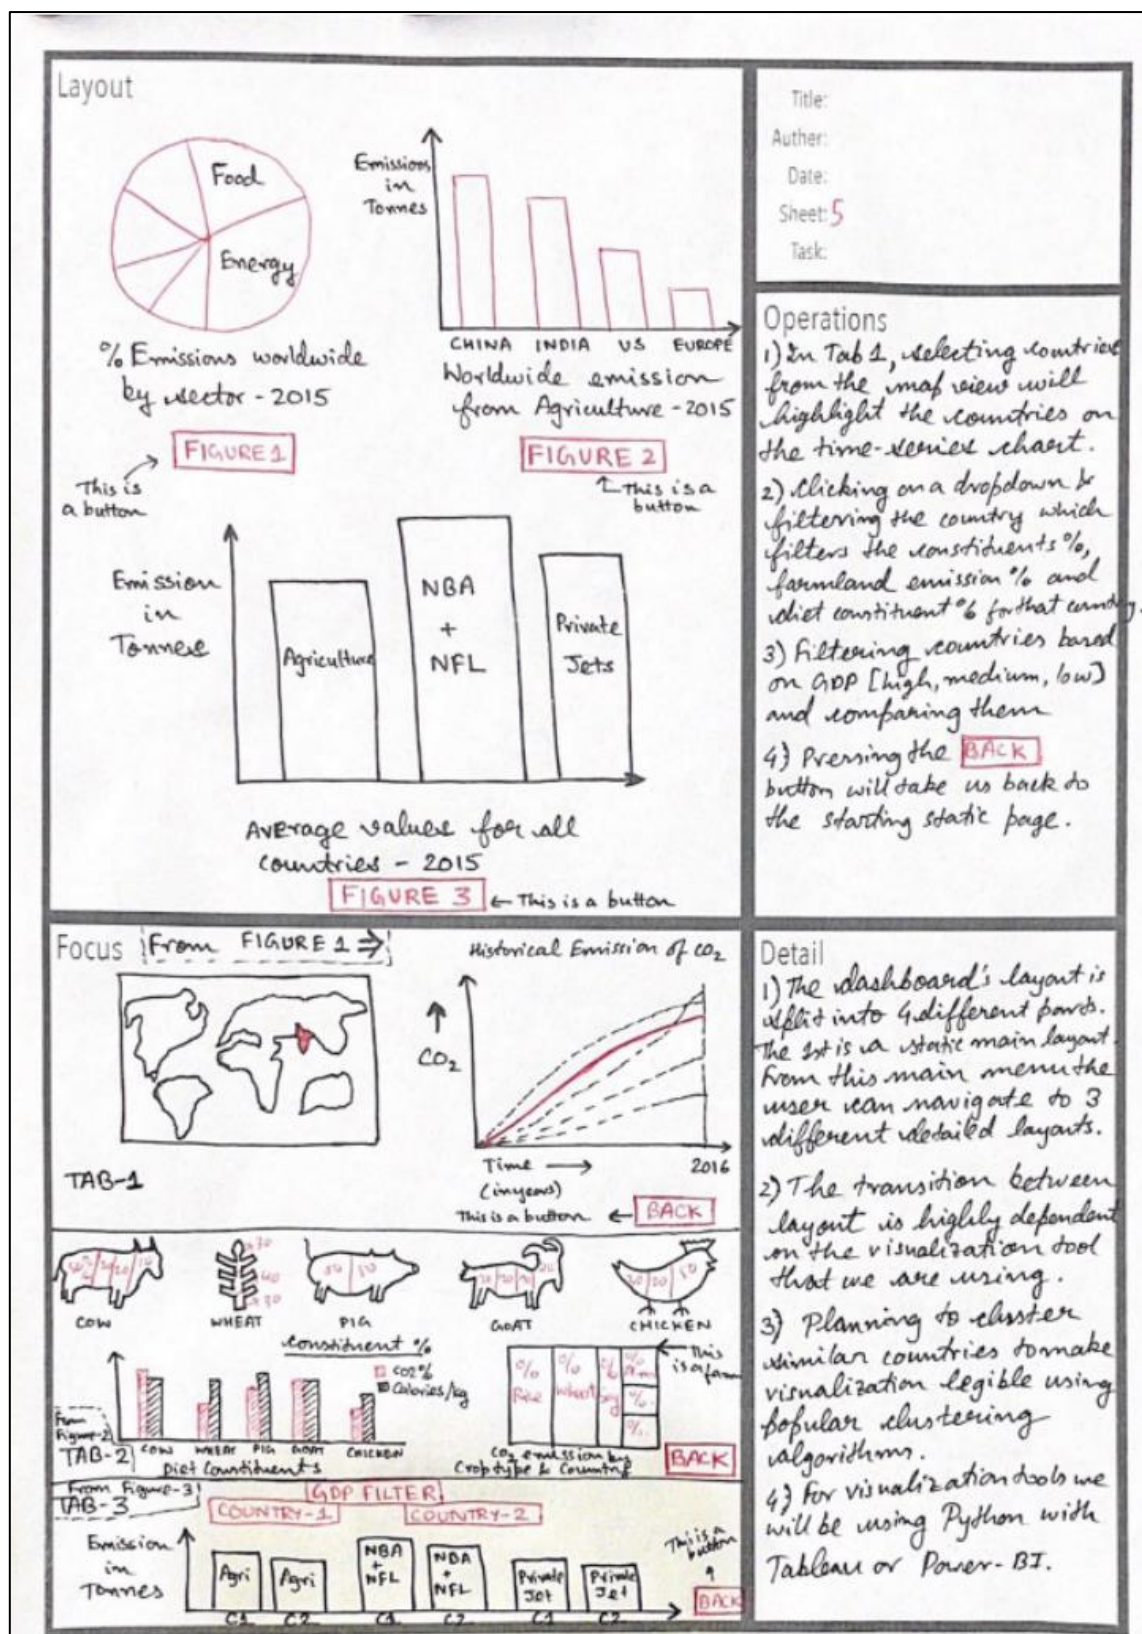 Layout
Food
Energy
% Emissions worldwide
by sector - 2015
FIGURE 1
This is
a button
Emissions
in
Tonnes
CHINA INDIA US EUROPE
Worldwide emission
from Agriculture - 2015
FIGURE 2
This is a
button
Emission
in
Tonnes
Agriculture
NBA
+
NFL
Private
Jets
Average values for all
countries - 2015
FIGURE 3 ← This is a button
Title:
Auther:
Date:
Sheet: 5
Task:
Operations
1) In Tab 1, selecting countries
from the map view will
highlight the countries on
the time-series chart.
2) Clicking on a dropdown &
filtering the country which
filters the constituents %,
farmland emission % and
diet constituent % for that country.
3) Filtering countries based
on GDP [high, medium, low]
and comparing them
4) Pressing the BACK
button will take us back to
the starting static page.
Focus From FIGURE 1 ⇒
TAB-1
Historical Emission of CO2
CO2
Time → 2016
(in years)
This is a button ← BACK
COW WHEAT PIG GOAT CHICKEN
30
40
30
50 50
20 20 50
Constituent %
CO2 %
Calories/kg
COW WHEAT PIG GOAT CHICKEN
From
Figure-2
TAB-2
Diet Constituents
% % % %
Rice Wheat
% 
%
This
is a farm
CO2 emission by
Crop type & Country
BACK
From Figure-3
TAB-3
GDP FILTER
COUNTRY-1 COUNTRY-2
Emission
in
Tonnes
Agri Agri
NBA
+
NFL
NBA
+
NFL
Private
Jet
Private
Jet
C1 C2 C1 C2 C1 C2
This is a
button
BACK
Detail
1) The dashboard's layout is
split into 4 different parts.
The 1st is a static main layout.
From this main menu the
user can navigate to 3
different detailed layouts.
2) The transition between
layout is highly dependent
on the visualization tool
that we are using.
3) Planning to cluster
similar countries to make
visualization legible using
popular clustering
algorithms.
4) For visualization tools we
will be using Python with
Tableau or Power-BI.